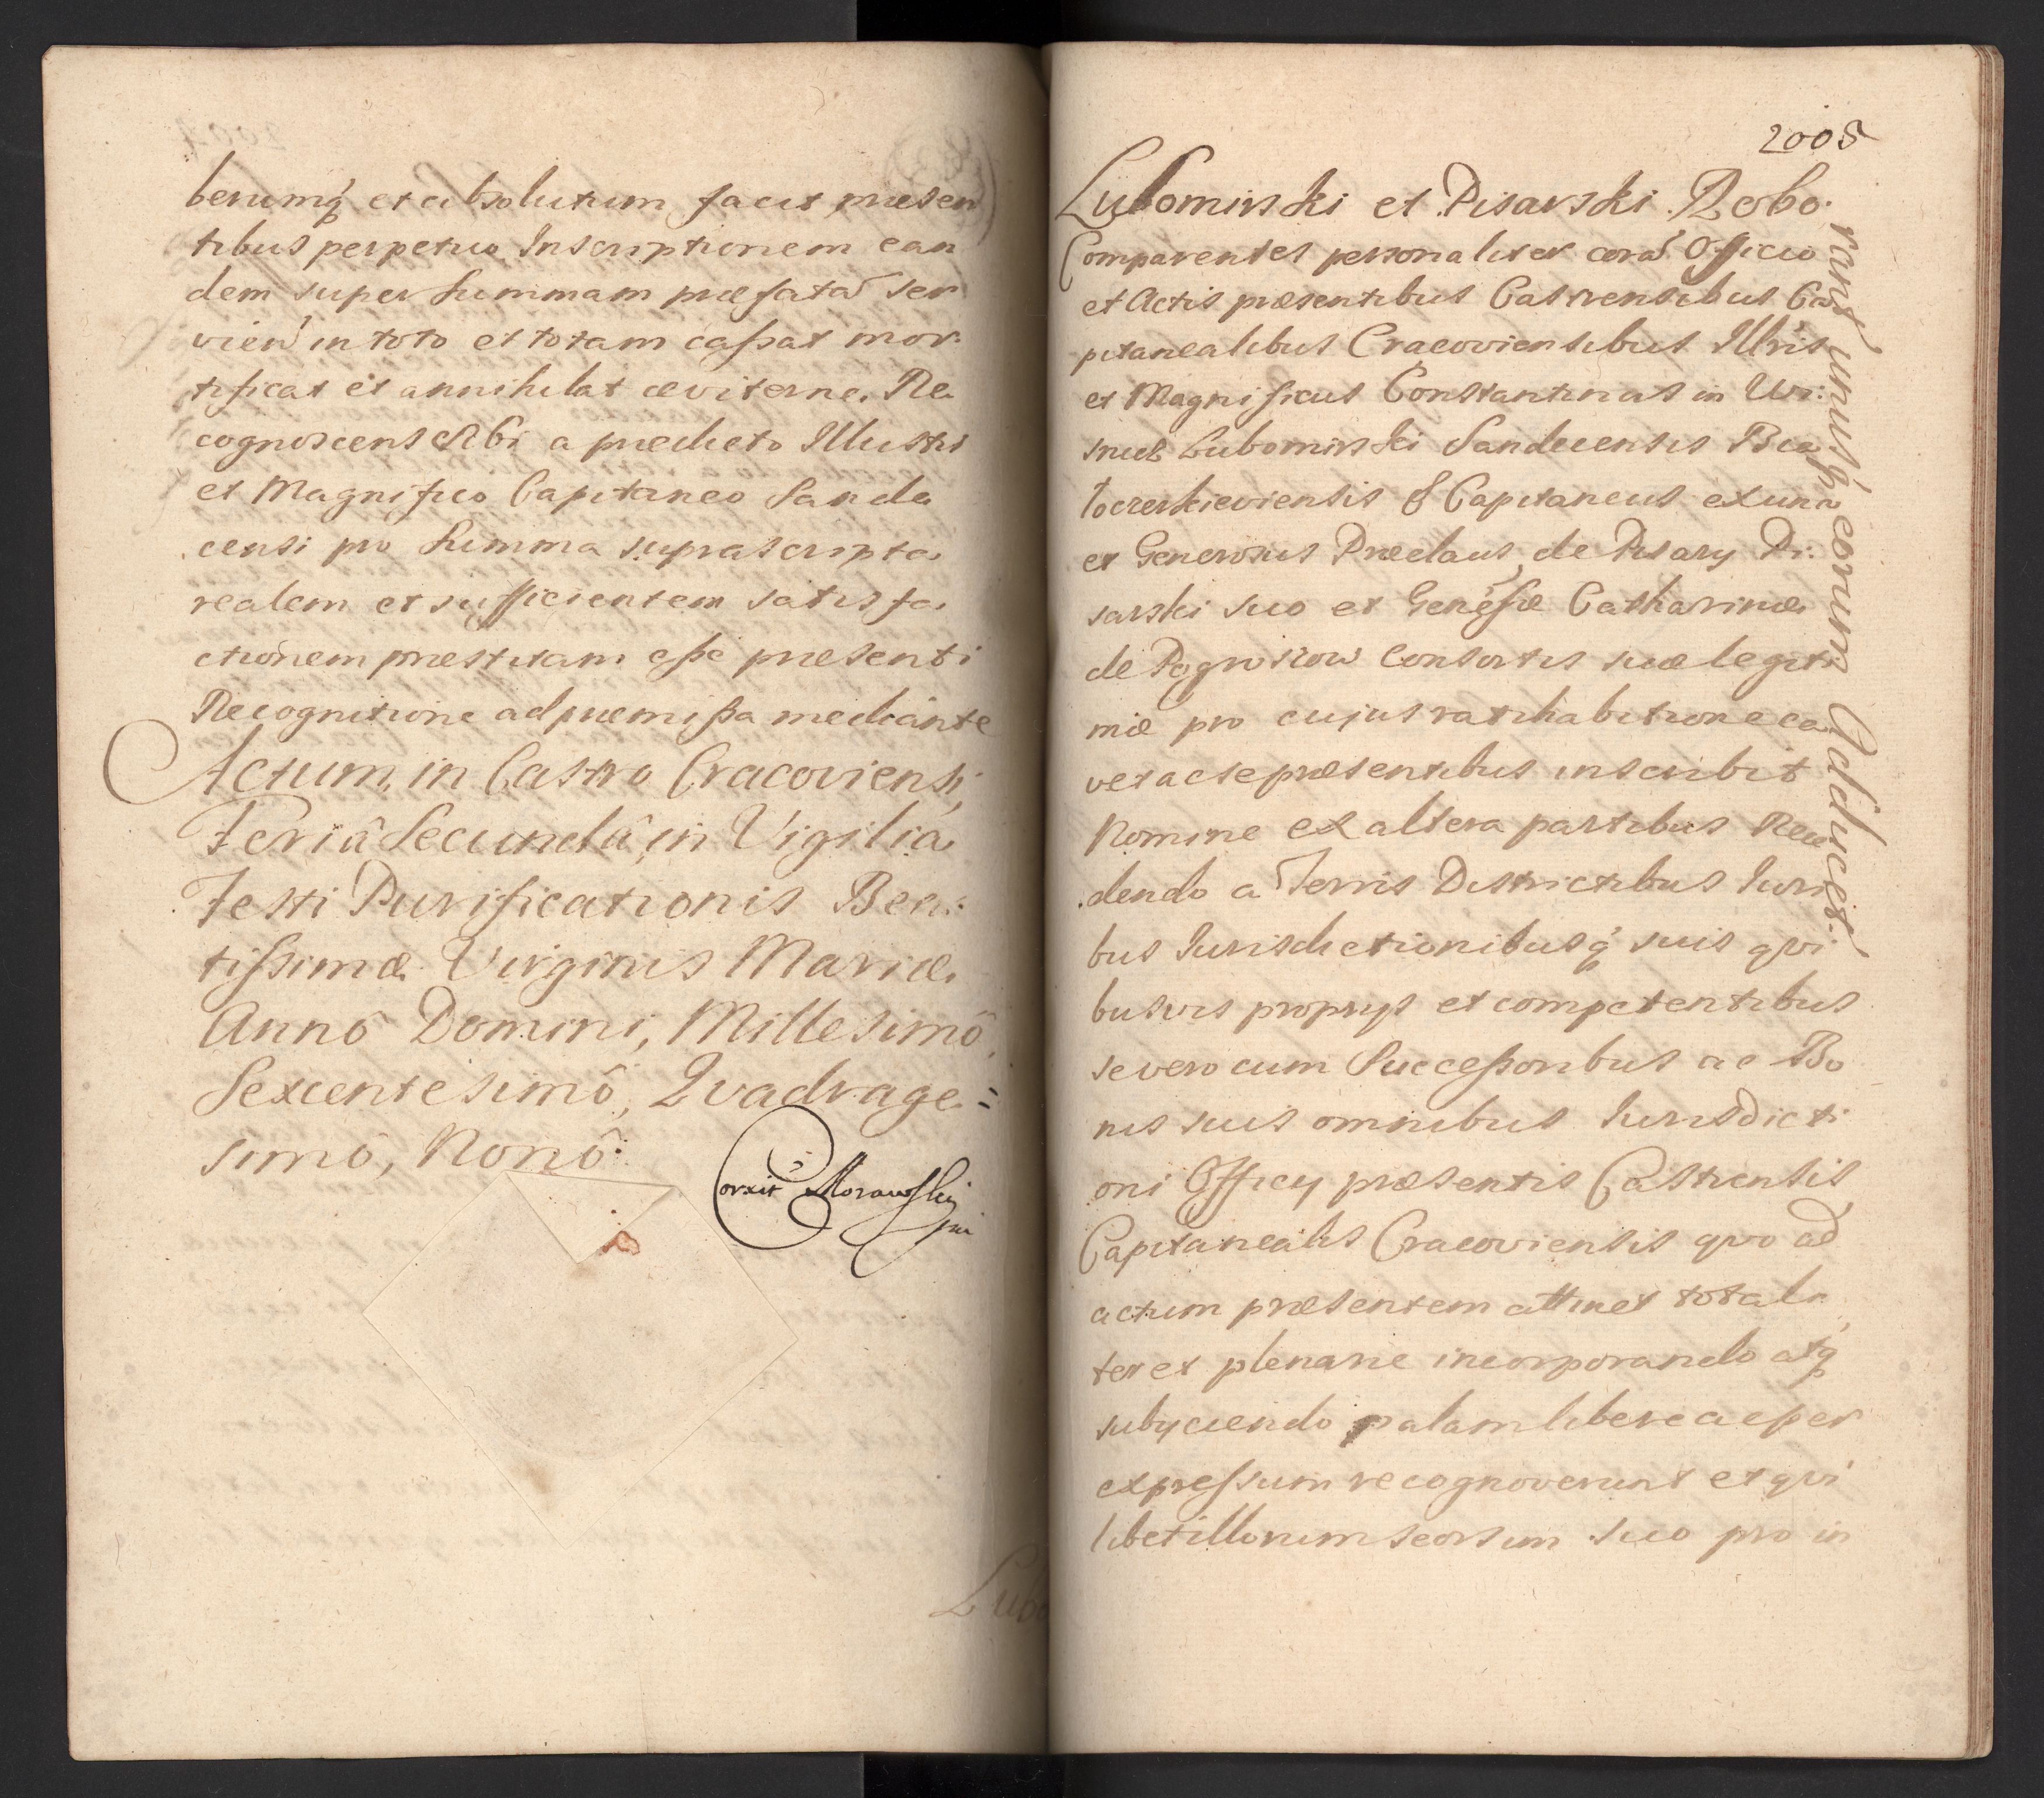 berumq́ et absolutum facit præsen
tibus perpetuo Inscriptionem ean
dem super Summam præfatā ser
vien̄ in toto et totam caſsat mor
tificat et annihilat æviterne. Re
cognoscens sibi a prædicto Illustri
et Magnifico Capitaneo Sande
censi pro Summa suprascripta
realem et sufficientem satisfa
ctionem præstitam eſse præsenti
Recognitione ad præmiſsa mediante
Actum, in Castro Cracoviensi,
Feriâ Secundâ, in Vigilia
Festi Purificationis Bea:
tiſsimæ Virginis Mariæ
Annô Domini, Millesimô
Sexcentesimô, Qvadrage=
simô, Nonô:
Corxit Morawski
mp
Lubo
2005
Lubomirski et Pisarski Robo.
rant unusq́ eorum Adducet.
Comparentes personaliter corā Officio
et Actis præsentibus Castrensibus Ca
pitanealibus Cracoviensibus Illris
et Magnificus Constantinus in Wi:
snicz Lubomirski Sandecensis Bia
łocerkieviensis & Capitaneus ex una
et Generosus Prædaus de Pisary Pi:
sarski suo et Geneſæ Catharinæ
de Pogroszow Consortis suæ legiti
mæ pro cujus ratihabitione ca
vet ac se præsentibus inscribit
Nomine ex altera partibus Rece
dendo a Terris Districtibus Iuri
bus Iurisdictionibusq́ suis qvi
busvis proprys et competentibus
se vero cum Succeſsoribus ac Bo
nis suis omnibus Iurisdicti
oni Officy præsentis Castrensis
Capitanealis Cracoviensis qvo ad
actum præsentem attinet totali
ter et plenarie incorporando atq́
subyciendo palam libere ac per
expreſsum recognoverunt et qvi
libet illorum seorsum suo pro in